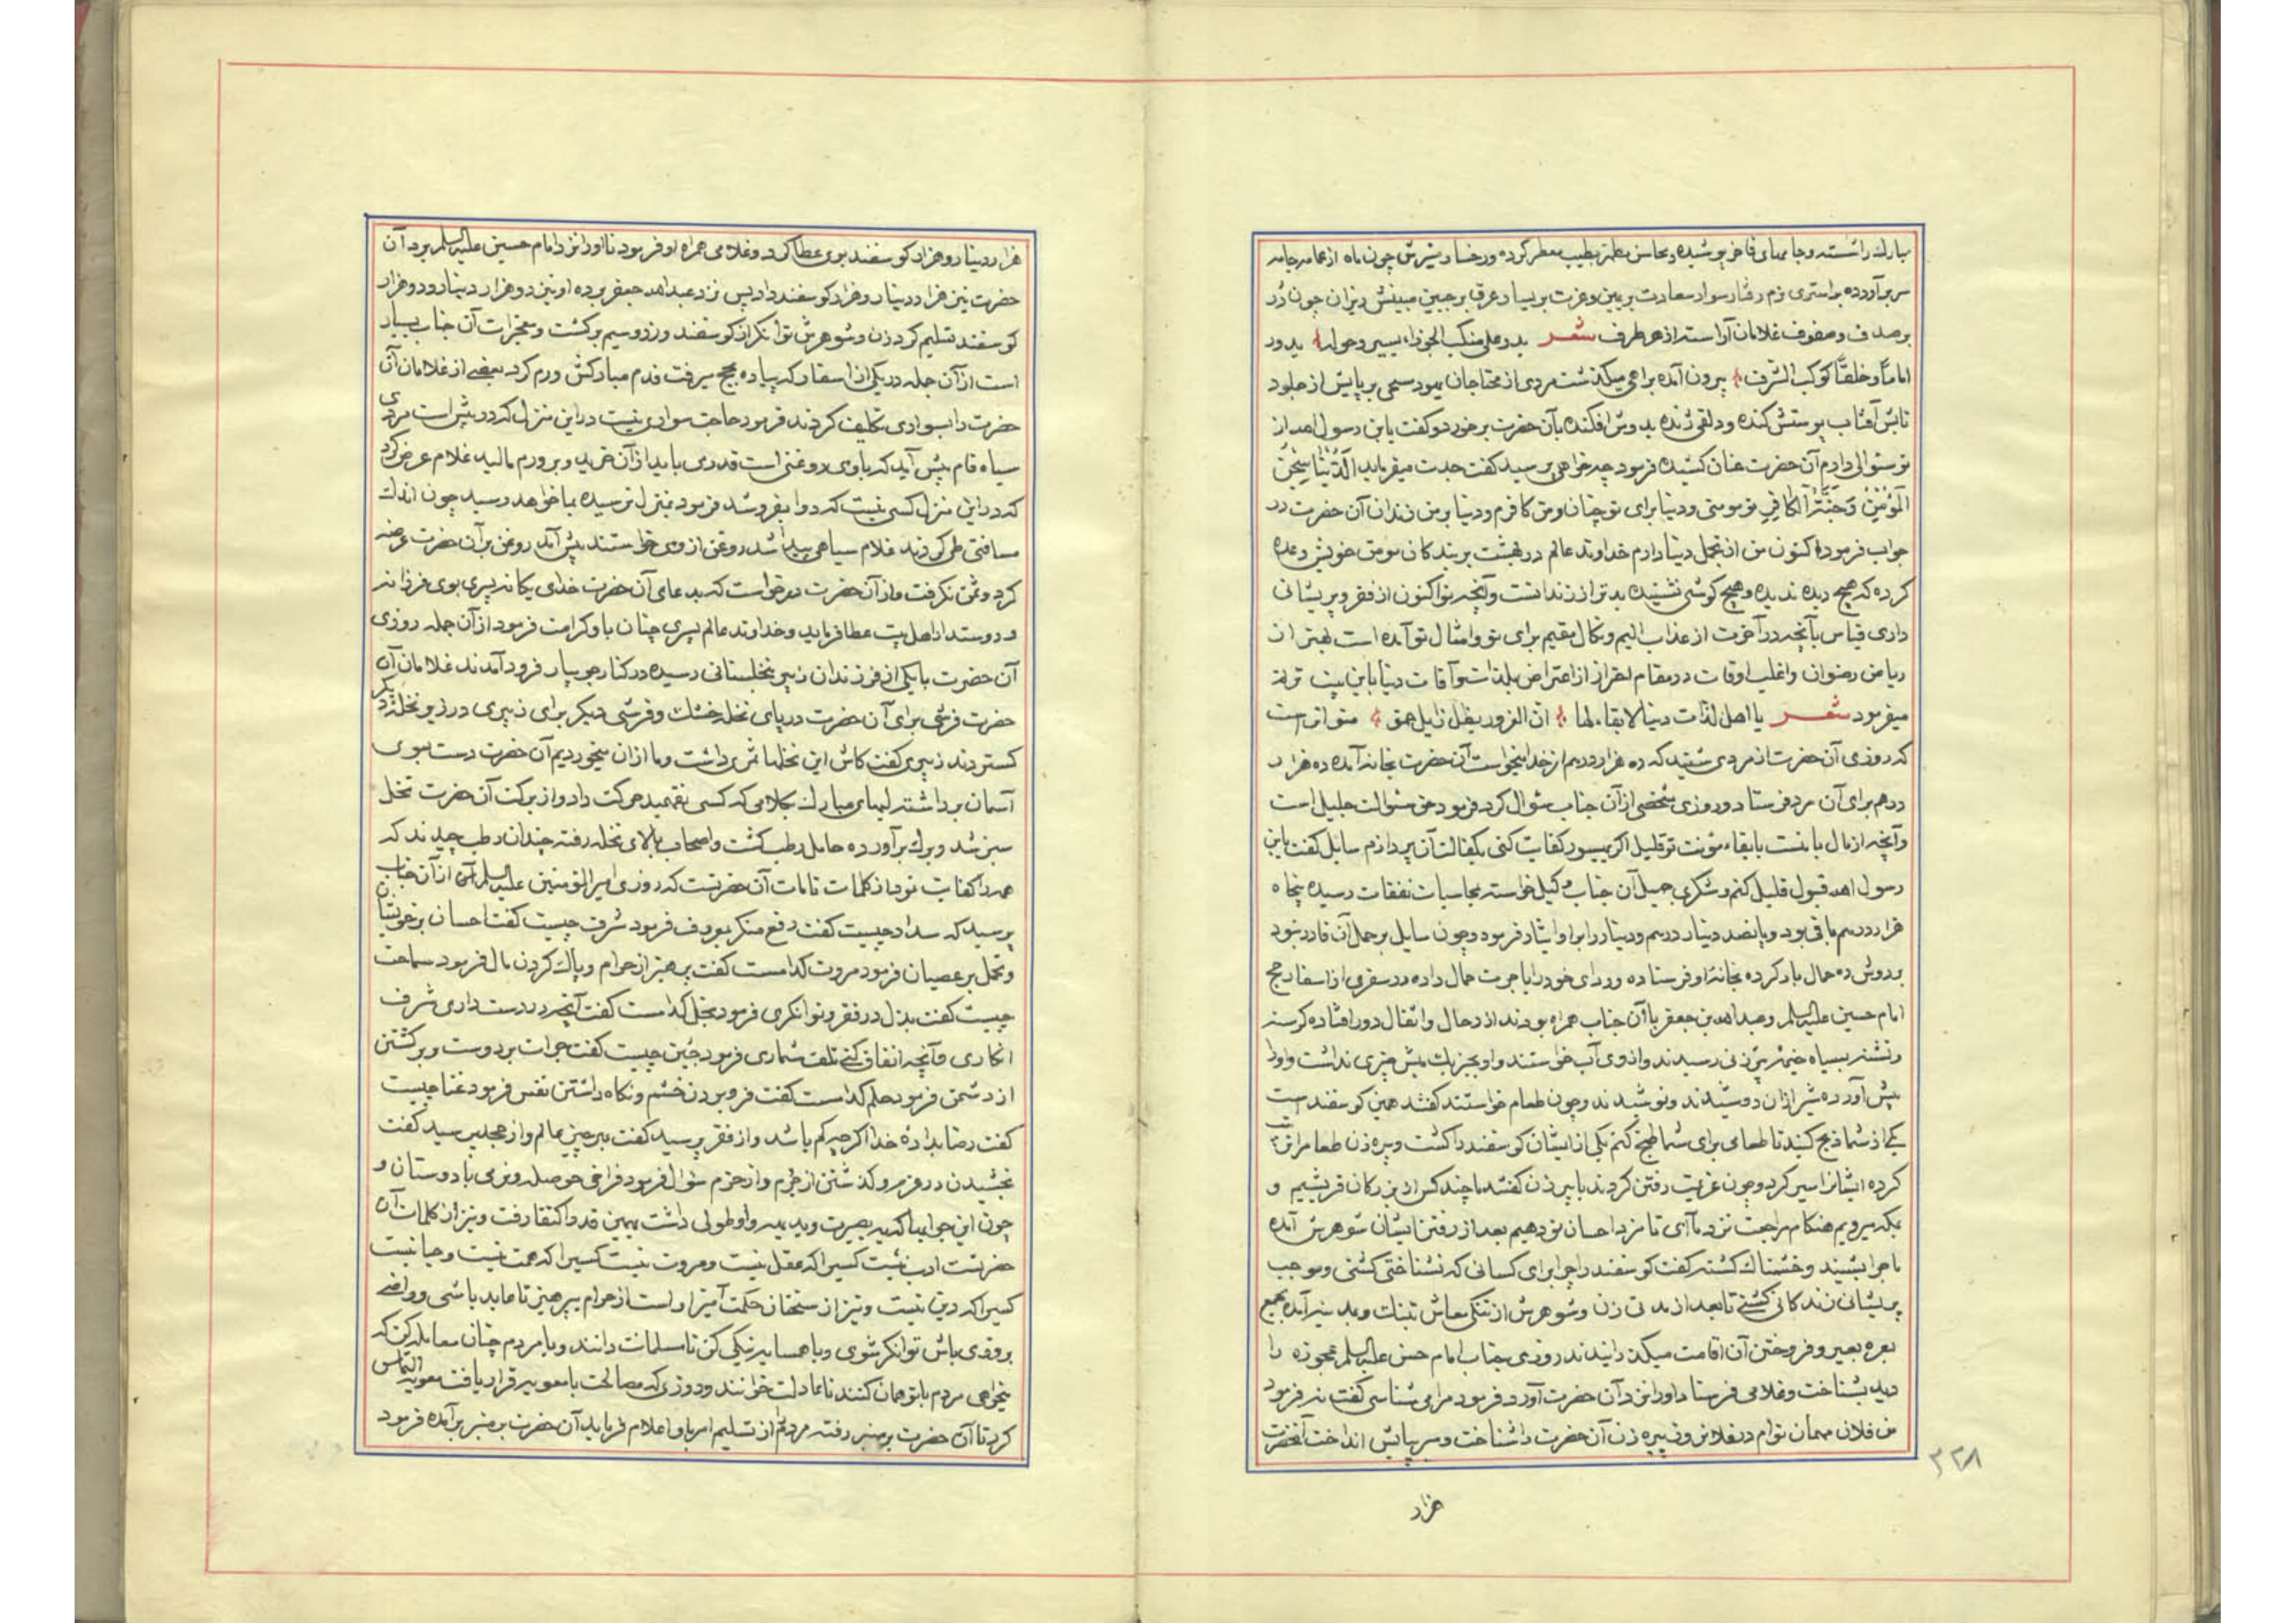 مبارك را شسته و جامهای فاخر پوشیده و محاسن مطهر بطیب معطر کرده و رخسار منیرش چون ماه از عمامه و جامه
سر برآورده بر استری نرم رفتار سوار سعادت بر یمین و عزت بر یسار عرق بر جبین مبینش ریزان چون در
بر صدف و صفوف غلامان آراسته از هر طرف شعر بدر علی منکب الجوزاء یسیر وحوله بدور
اماماً وخلقاً کوکب الشرف بیرون آمده براهی میکذشت مردی از محتاجان یهود بر پایش از جلود
تابش آفتاب پوستش کنده و دلقی ژنده بدوش افکنده بآن حضرت برخورد و کفت یا بن رسول الله از
تو سئوالی دارم آن حضرت عنان کشیده فرمود چه خواهی پرسید کفت جدت میفرماید الدُّنْیَا سِجْنُ
الْمُؤْمِنِ وَجَنَّةُ الْکافِرِ تو مومنی و دنیا برای تو چنان و من کافرم و دنیا بر من زندان آن حضرت در
جواب فرموده اکنون من از تجمل دنیا دارم خداوند عالم در بهشت بر بندکان مومن خویش وعده
کرده که هیچ دیده ندیده و هیچ کوش نشنیده بدتر از زندانست و آنچه تو اکنون از فقر و پریشانی
داری قیاس بآنچه در آخرت از عذاب الیم و نکال مقیم برای تو و امثال تو آمده است بهتر از
ریاض رضوان و اغلب اوقات در مقام احتراز از اعتراض بلذات و آفات دنیا باین بیت ترنم
میفرمود شعر یا اهل لذات دنیا لا بقاء لها ان الغرور بظل زایل حمق متواتر است
که روزی آن حضرت از مردی شنید که ده هزار درهم از خدا میخواست آن حضرت بخانه آمده ده هزار
درهم برای آن مرد فرستاد و روزی شخصی از آن جناب سئوال کرد فرمود حق سئوالت جلیل است
و آنچه از مال با منست بایفاء مؤنت تو قلیل اکر بمیسور کفایت کنی بکفالت آن پردازم سایل کفت یا بن
رسول الله قبول قلیل کنم و شکری جمیل آن جناب وکیل خواسته بمحاسبات نفقات رسیده پنجاه
هزار درهم باقی بود و پانصد دینار درهم و دینار را براو ایثار فرمود و چون سایل بر حمل آن قادر نبود
بردوش ده حمال بار کرده بخانه او فرستاده و ردای خود را باجرت حمال داده در سفری از اسفار حج
امام حسین علیه السلم و عبدالله بن جعفر با آن جناب همراه بودند از رحال و اثقال دور افتاده کرسنه
و تشنه بسیاه خیمه پیرزنی رسیدند و از وی آب خواستند و او بجز یك میش چیزی نداشت و او را
پیش آورده شیر ازان دوشیدند و نوشیدند و چون طعام خواستند کفت همین کوسفند است
یکی از شما ذبح کنید تا طعامی برای شما طبخ کنم یکی از ایشان کوسفند را کشت و پیره زن طعام مرتب
کرده ایشانرا سیر کرد و چون عزیمت رفتن کردند با پیر زن کفتند ما چند کس از بزرکان قریشیم و
بمکه میرویم هنکام مراجعت نزد ما آی تا مزد احسان تو دهیم بعد از رفتن ایشان شوهرش آمده
ماجرا بشنید و خشمناك کشته کفت کوسفند را چرا برای کسانی که نشناختی کشتی و موجب
پریشانی زندکانی کشتی تا بعد از مدتی زن و شوهرش از تنکی معاش تبنك و بمدینه آمده بجمع
بعره بعیر و فروختن آن اقامت میکذرانیدند روزی جناب امام حسن علیه السلم عجوزه را
دید بشناخت و غلامی فرستاد او را نزد آن حضرت آورد فرمود مرا می شناسی کفت نه فرمود
من فلان مهمان توام در فلان وقت پیره زن آن حضرت را شناخت و سر بپایش انداخت آنحضرت
۳۲۸
هزار
هزار دینار و هزار کوسفند بوی عطا کرد و غلامی همراه او فرمود تا او را نزد امام حسین علیه السلم برد آن
حضرت نیز هزار دینار و هزار کوسفند داد پس نزد عبدالله جعفر برده او نیز دو هزار دینار و دو هزار
کوسفند تسلیم کرد زن و شوهرش توانکر از کوسفند و زر و سیم برکشت و معجزات آن جناب بسیار
است از آن جمله در یکی از اسفار که پیاده بحج میرفت قدم مبارکش ورم کرد بعضی از غلامان آن
حضرت را بسواری تکلیف کردند فرمود حاجت سواری نیست در این منزل که در پیش است مردی
سیاه فام پیش آید که با وی روغنی است قدری باید از آن خرید و بر ورم مالید غلام عرض کرد
که در این منزل کسی نیست که دوا بفروشد فرمود بمنزل نرسیده بما خواهد رسید چون اندك
مسافتی طی کردند غلام سیاهی پیدا شد روغن از وی خواستند پیش آمد روغن بر آن حضرت عرضه
کرد و ثمن نکرفت و از آن حضرت درخواست که بدعای آن حضرت خدای یکانه پسری بوی فرزانه
و دوستدار اهل بیت عطا فرماید و خداوند عالم پسری چنان باو کرامت فرمود از آن جمله روزی
آن حضرت با یکی از فرزندان زبیر بنخلستانی رسیده در کنار جویبار فرود آمدند غلامان آن
حضرت فرشی برای آن حضرت در پای نخله خشك و فرشی دیکر برای زبیری در زیر نخله دیکر
کستردند زبیری کفت کاش این نخلها ثمری داشت و ما ازان میخوردیم آن حضرت دست بسوی
آسمان برداشته لبهای مبارك بکلامی که کسی نفهمید حرکت داد و از برکت آن حضرت نخل
سبز شد و برك برآورده حامل رطب کشت و اصحاب بالای نخله رفته چندان رطب چیدند که
همه را کفایت نمود از کلمات تامات آن حضرتست که روزی امیر المومنین علیه السلم از آن جناب
پرسید که سداد چیست کفت دفع منکر بمعروف فرمود شرف چیست کفت احسان بر خویشان
و تحمل بر عصیان فرمود مروت کدامست کفت پرهیز از حرام و پاك کردن مال فرمود سماحت
چیست کفت بذل در فقر و توانکری فرمود بخل کدامست کفت آنچه در دست داری شرف
انکاری و آنچه انفاق کنی تلف شماری فرمود جبن چیست کفت جرات بر دوست و برکشتن
از دشمن فرمود حلم کدامست کفت فرو بردن خشم و نکاه داشتن نفس فرمود غنا چیست
کفت رضا بداده خدا اکرچه کم باشد و از فقر پرسید کفت بهر چیز عالم و از مجد پرسید کفت
بخشیدن در غرم و کذشتن از جرم و از حزم سئوال فرمود فراخی حوصله و نرمی با دوستان و
چون این جوابها که بر بصیرت و ید بیضا و طولی داشت بهمین قدر اکتفا رفت و نیز از کلمات آن
حضرتست ادب نیست کسیرا که عقل نیست و مروت نیست کسیرا که همت نیست و حیا نیست
کسیرا که دین نیست و نیز از سخنان حکمت آمیز اوست از حرام بپرهیز تا عابد باشی و راضی
بروزی باش توانکر شوی و با همسایه نیکی کن تا مسلمانت دانند و با مردم چنان معامله کن که
میخواهی مردم با تو همان کنند تا عادلت خوانند و روزی که مصالحت با معویه قرار یافت معویه التماس
کرد تا آن حضرت بر منبر رفته مردم را از تسلیم امر باو اعلام فرماید آن حضرت بر منبر برآمده فرمود